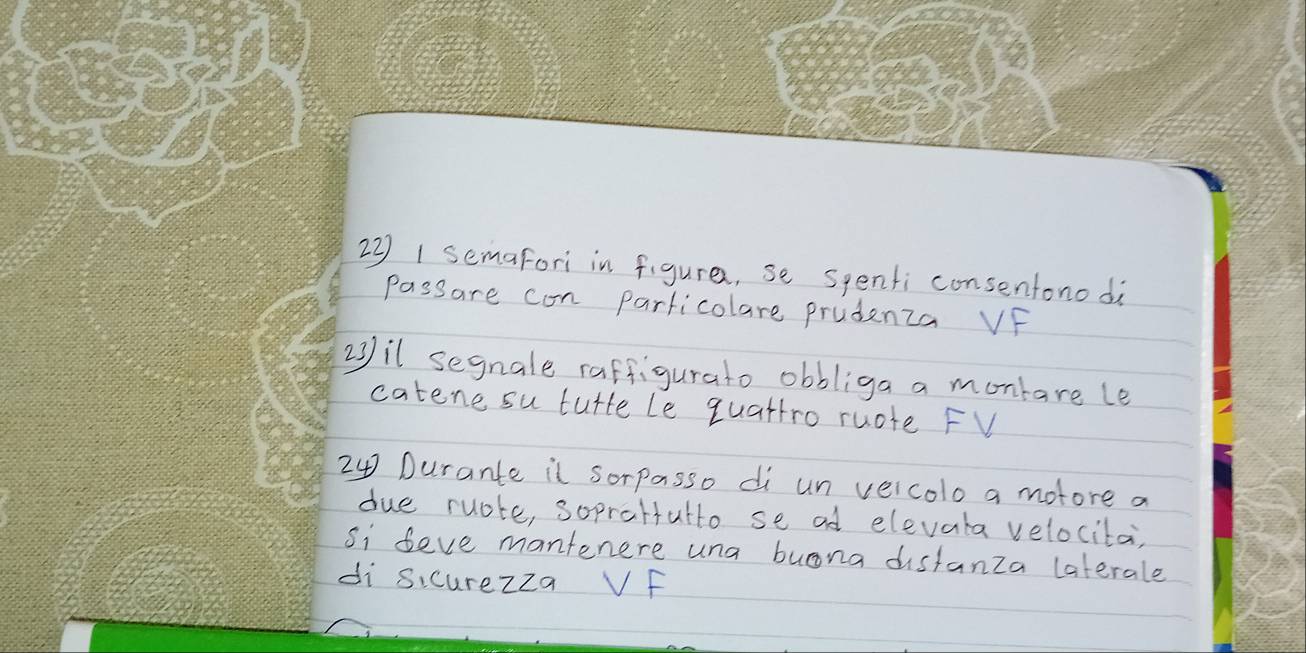 22) I semafori in figura, se spenti consentono di
passare con particolare prudenza VF
23) il segnale raffigurato obbliga a montare le
catene su tutte le quattro ruote FV
24) Durante il sorpasso di un veicolo a motore a
due ruote, soprattutto se ad elevata velocità,
si deve mantenere una buona distanza laterale
di sicurezza VF